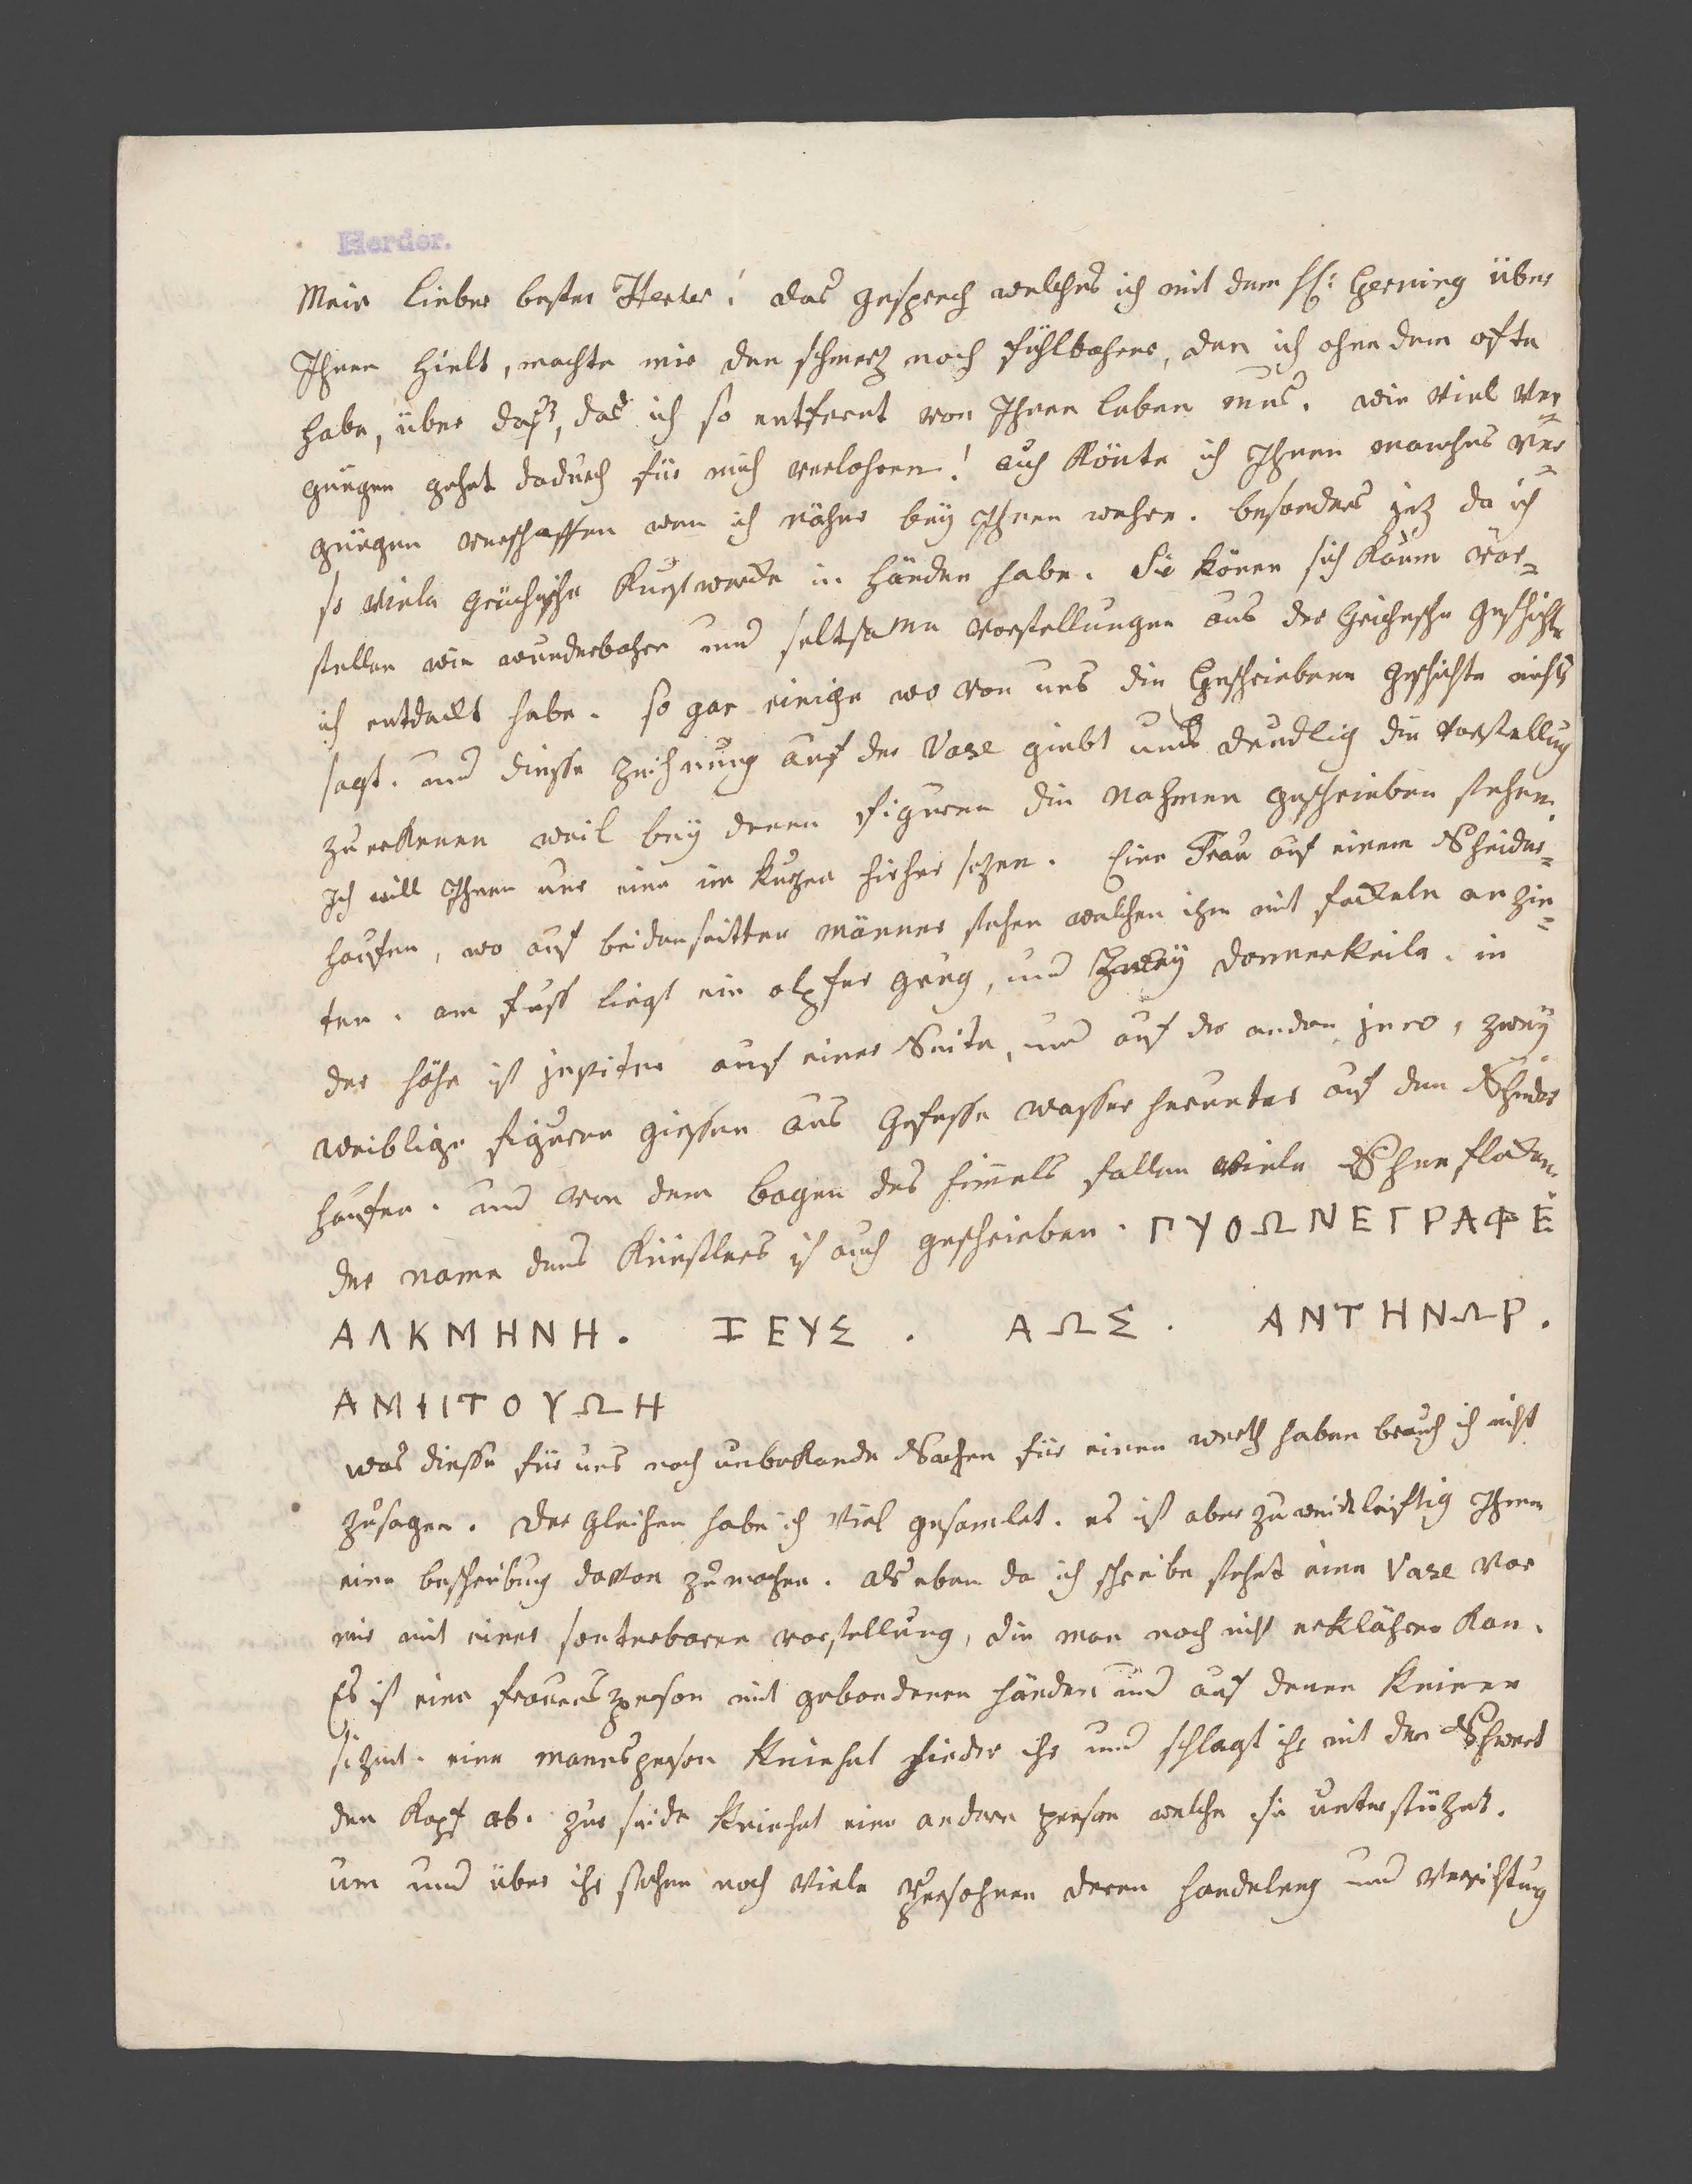 Herder.
Mein lieber bester Herder! das gesprech welches ich mit dem H: Gerning über
Ihnen hielt, machte mir den schmerz noch fühlbahrer, den ich ohne dem ofte
habe, über daß, das ich so entfernt von Ihnen leben mus. wie viel ver=
gnügen gehet dadurch für mich verlohren! auch könte ich Ihnen manches ver=
gnügen verschaffen wen ich näher bey Ihnen wehre. besonders jez da ich
so viele grichische kunstwercke in händen habe. Sie könen sich kaum vor=
stellen wie wunderbahre und seltsame vorstellungen aus der Grichesche geschichte
ich entdeckt habe. so gar einige wo von uns die Geschriebene geschichte nichts
sagt. und diesse zeichnung auf der Vase giebt uns deudlig die vorstellug
zu erkenen weil bey denen figuren die nahmen geschrieben stehen.
Ich will Ihnen nur eine im kurzen hieher sezen. Eine Frau auf einem Scheider=
haufen, wo auf beidenseitten männer stehen welchen ihn mit fackeln anzin=
ten. am fuss liegt ein olpfer grug, und Zwey donnerkeile. in
der höhe ist jupiter auf einer Seite, und auf der andern juno, zwey
weiblige figuren giessen aus Gefesse wasser herunter auf den Scheider
haufen. und von dem bogen des himels fallen viele Schneeflocken.
der name dens Künstlers ist auch geschrieben. ΓΥΘΩΝΕΓΡΑΦΕ
ΑΛΚΜΗΝΗ. ΙΕΥΣ. ΑΩΣ. ΑΝΤΗΝΩΡ.
ΑΜΦΙΤΟΥΩΗ
was diesse für uns noch unbekande Sachen für einen werth haben brauch ich nicht
zusagen. der gleichen habe ich viel gesamlet. es ist aber zu weidleiftig Ihnen
eine beschreibung davon zumachen. als eben da ich schreibe stehet eine Vase vor
mir mit einer sonterbaren vorstellung, die man noch nicht erklähren kan.
Es ist eine frauensperson mit gebondenen händen und auf denen knieen
sizent. eine manesperson kniehet hinder ihr und schlagt ihr mit den Schwert
den kopf ab. zur seide kniehet eine andere person welche sie unterstüzet.
um und über ihr stehen noch viele Persohnen deren handelung und verrichtung